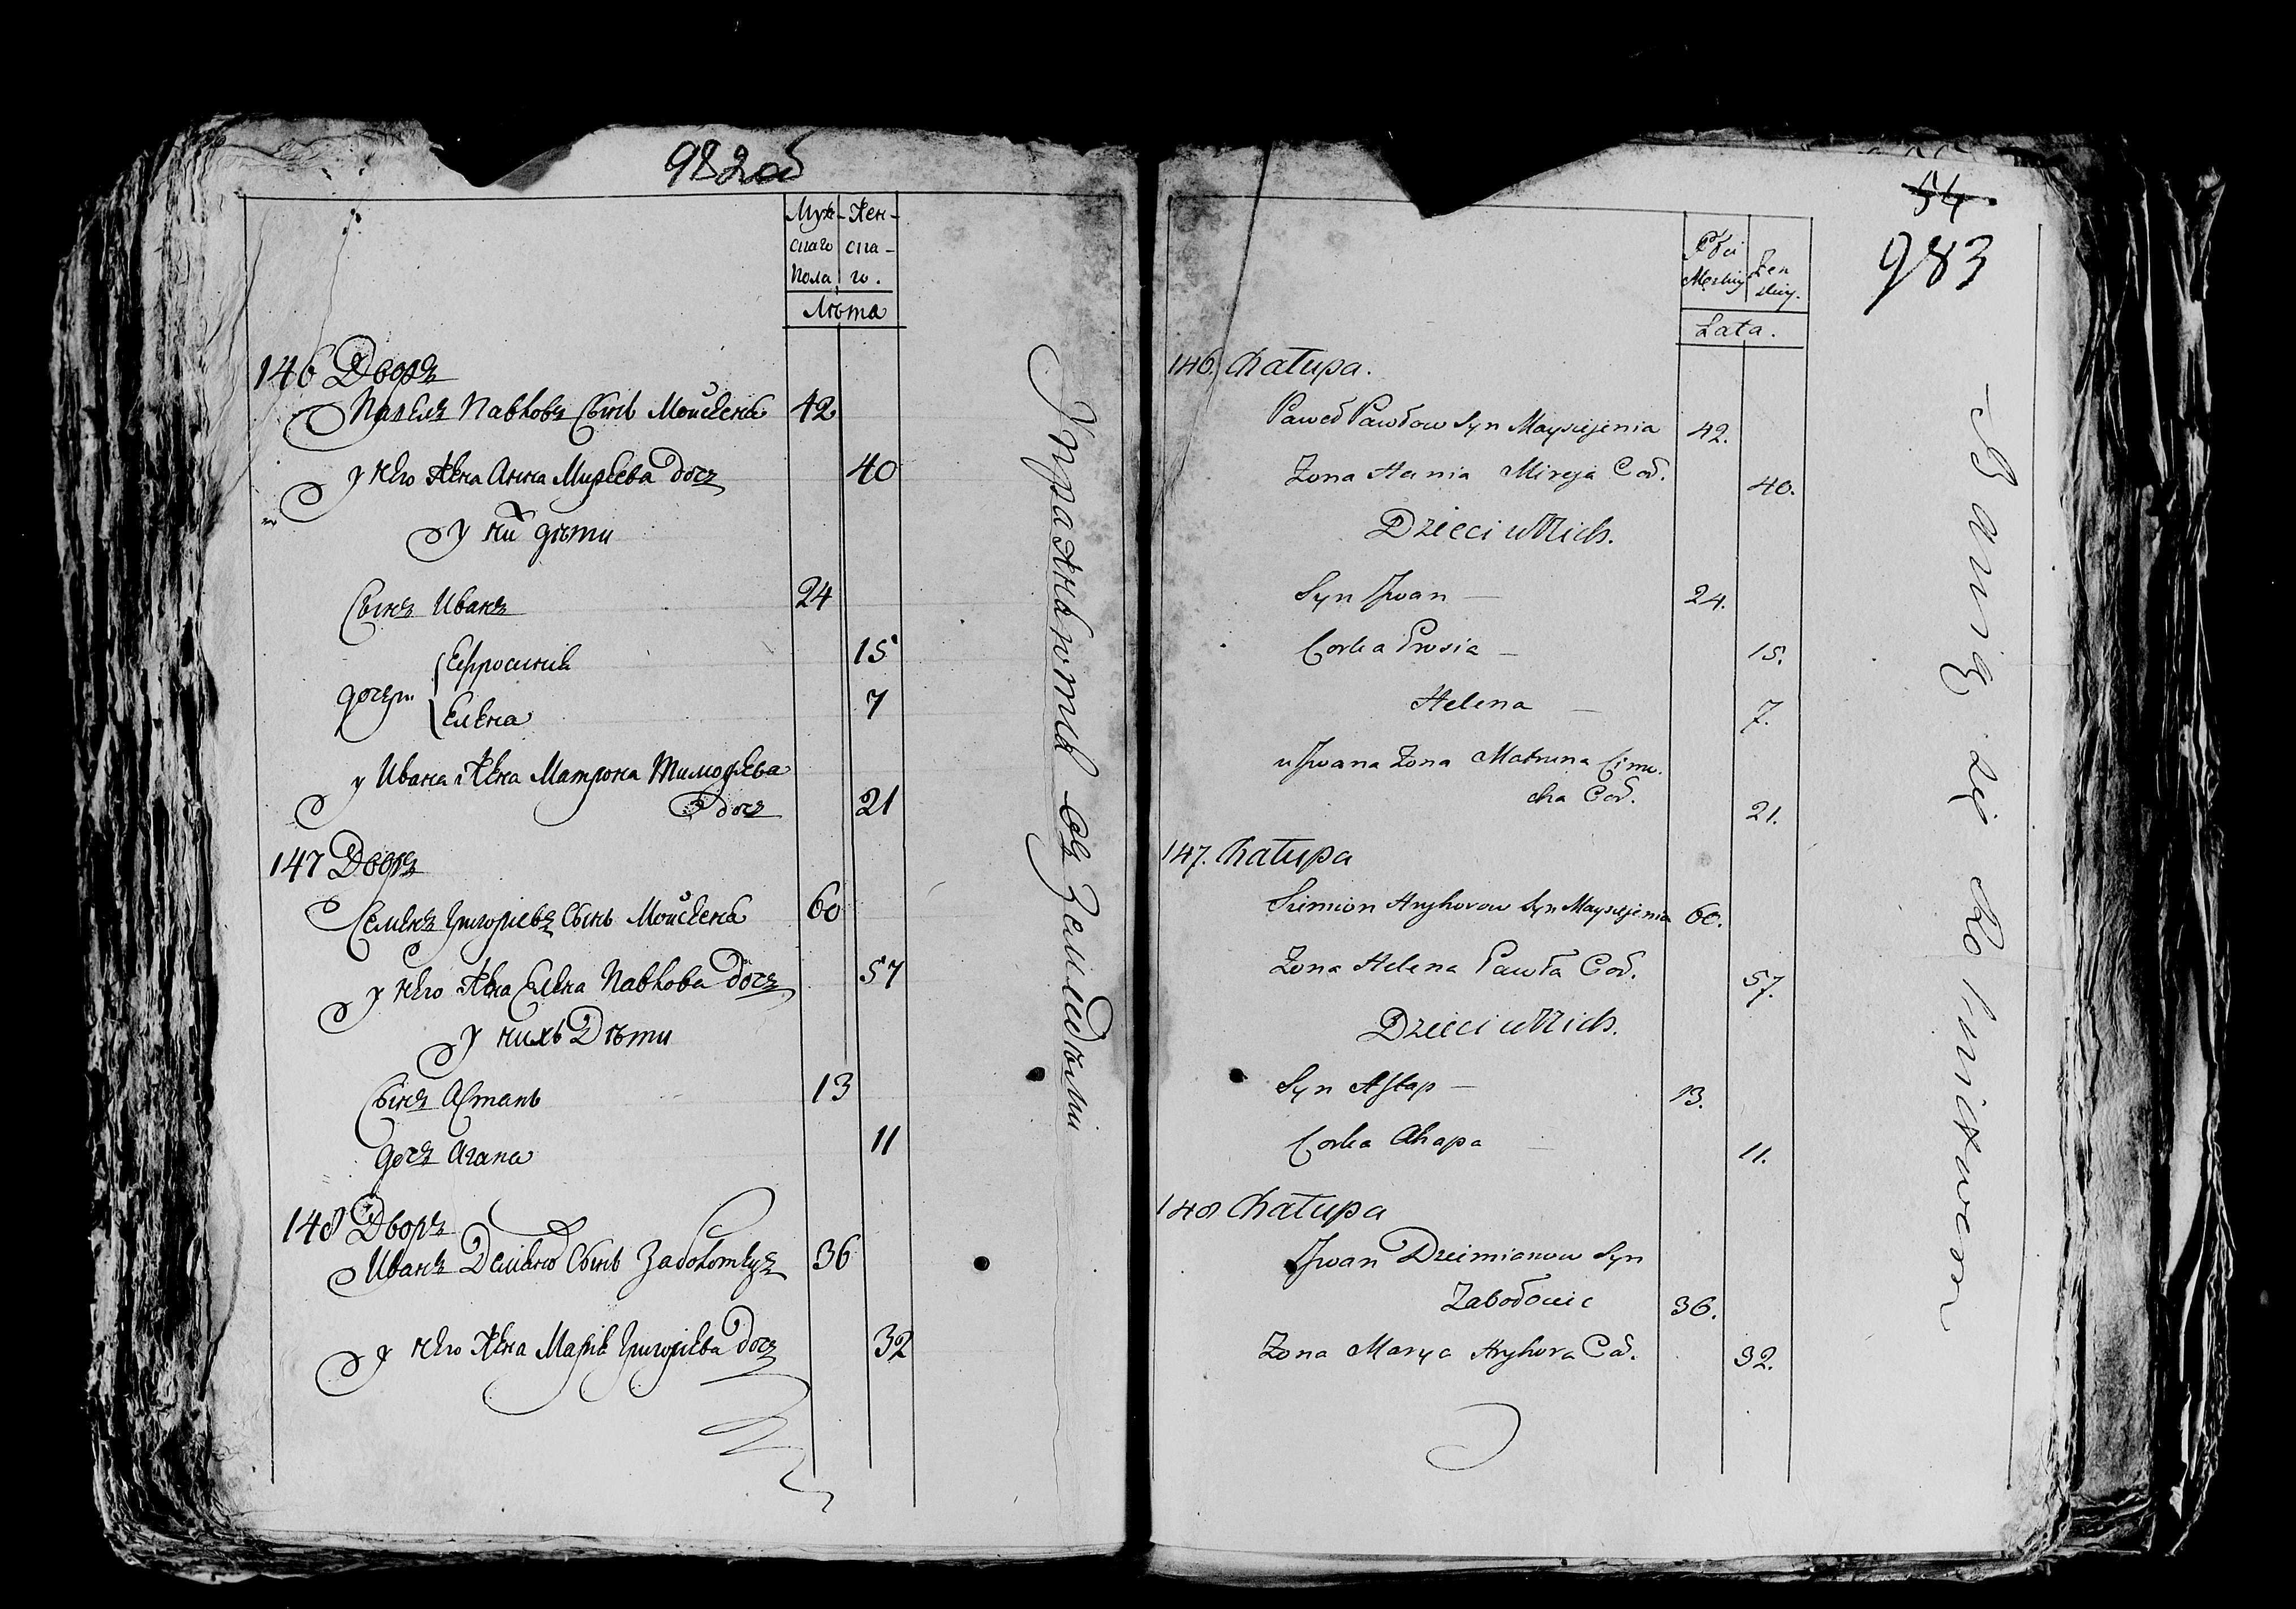 982об
Муж- Жен-
скаго ска-
пола го.
Лѣта
146 Дворъ
Павелъ Павловъ сынъ Мойсѣеня 42
у него жена Анна Мирѣева дочъ 40
у ни̃ дѣти
Сынъ Иванъ 24
дочери Ефросиния 15
Елена 7
у Ивана жена Матрона Тимофѣева
дочъ 21
147 Дворъ
Семенъ Григорьевъ сынъ Мойсѣеня 60
у него жена Елена Павлова дочъ 57
у нихъ дѣти
Сынъ Астапъ 13
дочъ Агапа 11
148 Дворъ
Иванъ Демьяно сынъ Заболотецъ 36
у него жена Марія Григорьева дочъ 32
Упражняются въ Земледѣліи
54
983
Płci
Męskiej Żen
skiey.
Lata.
146. Chałupa.
Paweł Pawłow Syn Mayseienia 42.
Zona Hania Mireja Cor. 40.
Dzieci u Nich.
Syn Jwan 24.
Corka Prosia 15.
Helena 7.
u Jwana Zona Matruna Cimo-
cha Cor. 21.
147. Chałupa
Siemion Hryhorow Syn Mayseienia 60.
Zona Helena Pawła Cor. 57.
Dzieci u Nich.
Syn Astap 13.
Corka Ahapa 11.
148 Chałupa
Jwan Dziemianow Syn
Zabołocic 36.
Zona Marya Hryhora Cor. 32.
Bawią się Rolnictwem